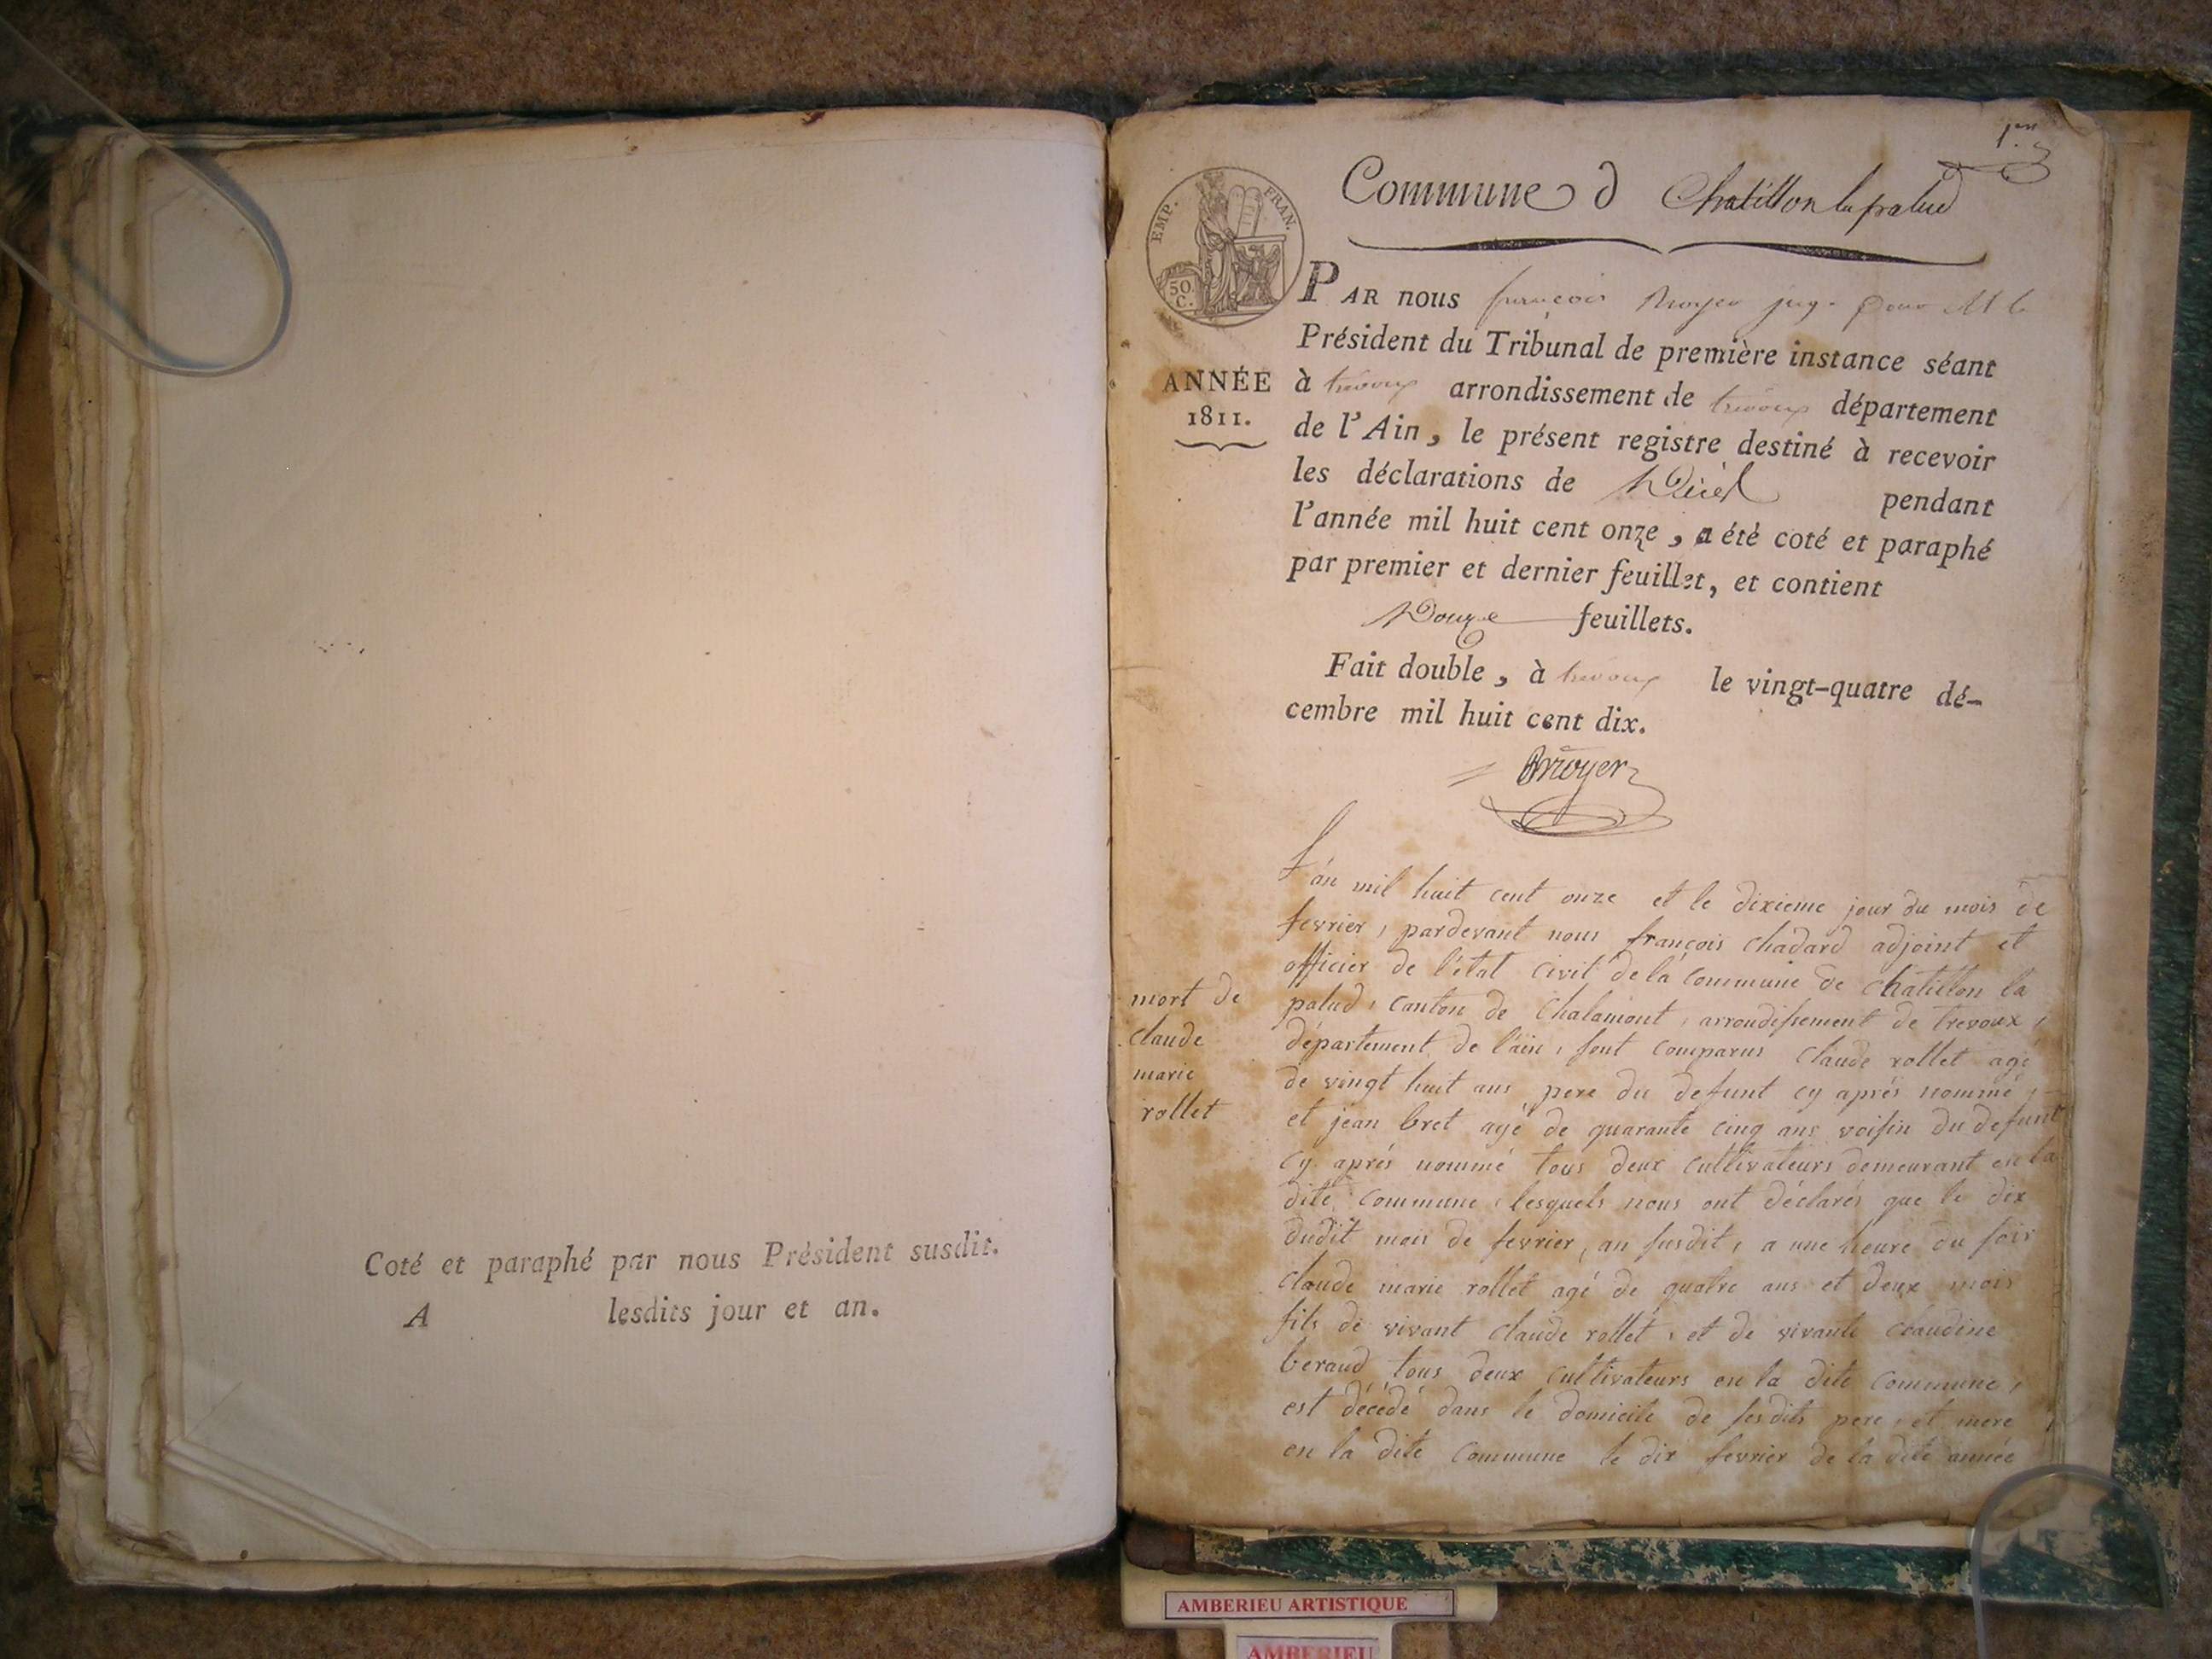 Coté et paraphé par nous Président susdit.
A lesdits jour et an.
1er
Commune d Chatillon la palud
EMP. FRAN.
50. C.
ANNÉE
1811.
PAR nous françois moyer juge pour M le
Président du Tribunal de première instance séant
à trévoux arrondissement de trévoux département
de l'Ain, le présent registre destiné à recevoir
les déclarations de Décès pendant
l'année mil huit cent onze, a été coté et paraphé
par premier et dernier feuillet, et contient
Douze feuillets.
Fait double, à trevoux le vingt-quatre dé-
cembre mil huit cent dix.
mort de
claude
marie
rollet
L'an mil huit cent onze et le dixieme jour du mois de
fevrier, pardevant nous françois chadard adjoint et
officier de l'état civil de la commune de chatillon la
palud, canton de Chalamont, arrondissement de trevoux,
département de l'ain, sont comparus claude rollet agé
de vingt huit ans pere du defunt cy aprés nommé,
et jean bret agé de quarante cinq ans voisin du defunt
cy aprés nommé tous deux cultivateurs demeurant en la
dite commune, lesquels nous ont déclarés que le dix
dudit mois de fevrier, an susdit, a une heure du soir
claude marie rollet agé de quatre ans et deux mois
fils de vivant claude rollet, et de vivante claudine
beraud tous deux cultivateurs en la dite commune,
est décédé dans le domicile de sesdits pere et mere
en la dite commune le dix fevrier de la dite année
AMBERIEU ARTISTIQUE
AMBERIEU